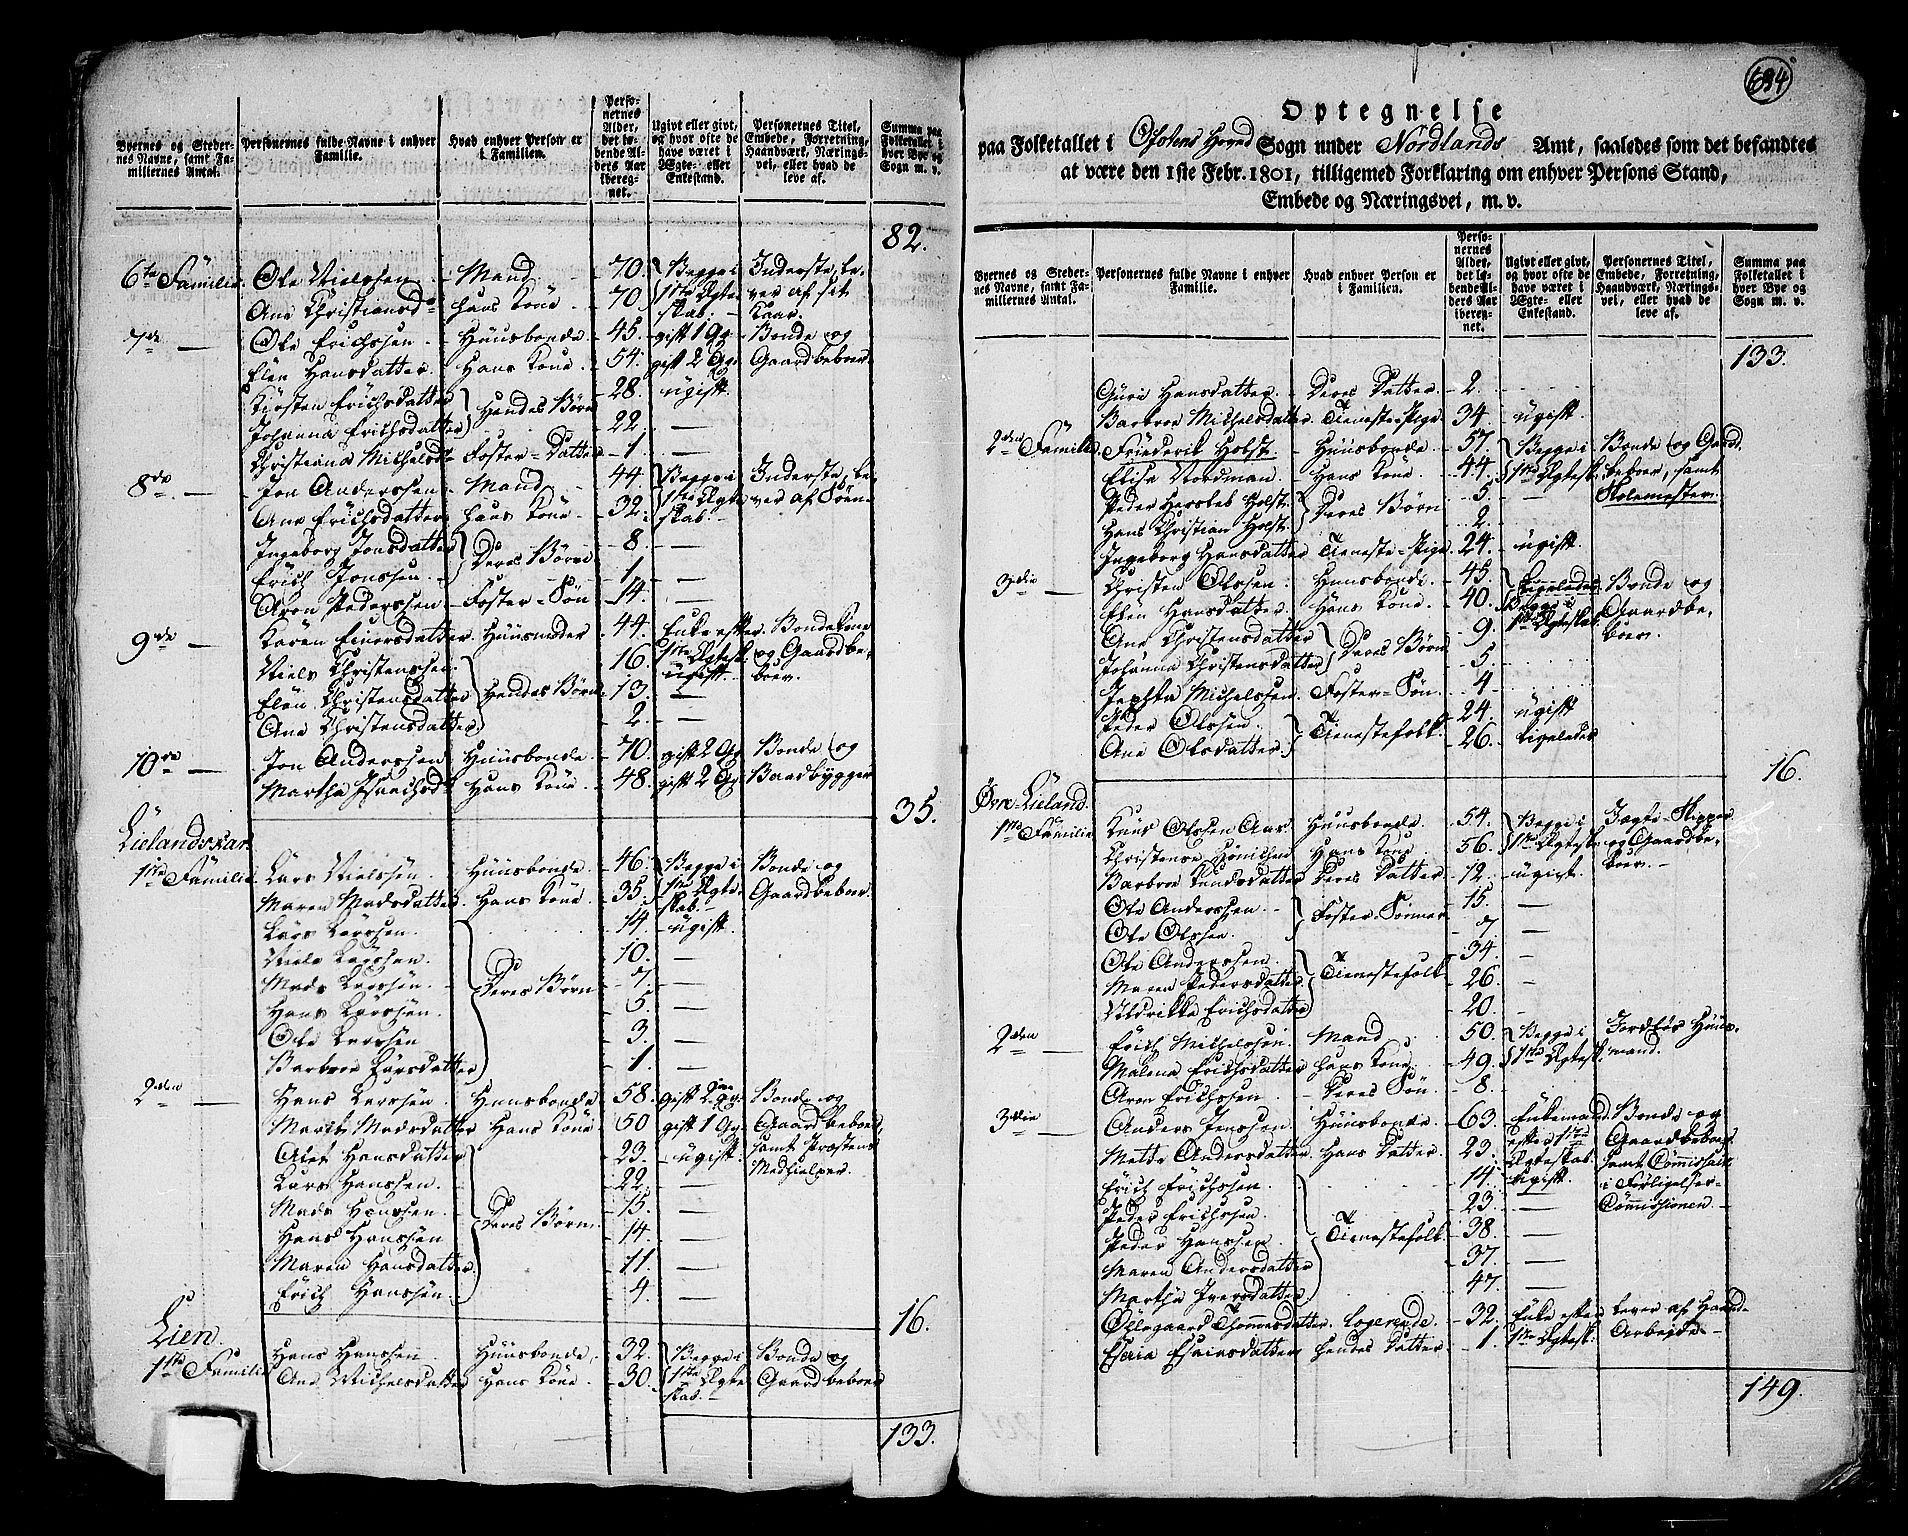 Byernes og Steder-
nes Navne, samt Fa-
milliernes Antal.
Personernes fulde Navne i enhver
Familie.
Hvad enhver Person er
i Familien.
Perso-
nernes
Alder,
det lø-
bende Al-
ders Aar
iberegnet.
Ugivt eller givt,
og hvor ofte de
have været i
Ægte- eller
Enkestand.
Personernes Titel,
Embede, Forretning,
Haandværk, Nærings-
vei, eller hvad de
leve af.
Summa paa
Folketallet i
hver Bye og
Sogn m. v.
82.
6te Familie Ole Nielssen Mand 70. Begge i Inderste, le-
Ane Christiansd. hans Kone 70 1ste Ægte ver af sit
skab.
7de Ole Erichssen Huusbonde 45. gift 1 G. Bonde og
Elen Hansdatter Hans Kone 54. gift 2 G. Gaardbeboer
Kirsten Erichsdatter Hendes Børn 28. ugift.
Johanna Erichsdatter 22 —
Christiana Michelsd. Foster-Datter 1 —
8de Jon Anderssen Mand 44. Begge i Inderste, le-
Ane Erichsdatter hans Kone 32. 1ste Ægte ver af Søen
skab.
Ingeborg Jonsdatter Deres Børn 8. —
Erich Jonssen 1. —
Aron Pederssen Foster-Søn 14. —
9de Karen Einersdatter Huusmoder 44. Enke efter Bondekone
Niels Christenssen Hendes Børn 16. 1ste Ægtesk. og Gaardbe-
ugift boer.
Elen Christensdatter 13. —
Ane Christensdatter 2. —
10de Jon Anderssen Huusbonde 70. gift 2 G. Bonde og
Martha Hans Kone 48. gift 2 G.
35.
Lielandskar
1ste Familie Lars Nielssen Huusbonde 46. Begge i Bonde og
Maren Madsdatter Hans Kone 35. 1ste Ægte Gaardbeboer
skab.
Lars Larssen Deres Børn 14. ugift.
Niels Larssen 10. —
Mads Larssen 7. —
Hans Larssen 5. —
Ole Larssen 3. —
Barbroe Larsdatter 1. —
2den Hans Larssen Huusbonde 58. gift 2 G. Bonde og
Marith Madsdatter Hans Kone 50 gift 1 G. Gaardbeboer,
samt Præstens
Medhielper.
Olef Hansdatter Deres Børn 23. ugift.
Lars Hanssen 22. —
Mads Hanssen 15. —
Hans Hanssen 14. —
Maren Hansdatter 11. —
Erich Hanssen 4. —
16.
Lien
1ste Familie Hans Hanssen Huusbonde 32. Begge i Bonde og
Ane Michelsdatter Hans Kone 30. 1ste Ægte Gaardbeboer
skab.
133.
694
Optegnelse
paa Folketallet i Ofotens Hoved Sogn under Nordlands Amt, saaledes som det befandtes
at være den 1ste Febr. 1801, tilligemed Forklaring om enhver Persons Stand,
Embede og Næringsvei, m. v.
Byernes og Steder-
nes Navne, samt Fa-
milliernes Antal.
Personernes fulde Navne i enhver
Familie.
Hvad enhver Person er
i Familien.
Perso-
nernes
Alder,
det lø-
bende Al-
ders Aar
ibereg-
net.
Ugivt eller givt,
og hvor ofte de
have været i
Ægte- eller
Enkestand.
Personernes Titel,
Embede, Forretning,
Haandværk, Nærings-
vei, eller hvad de
leve af.
Summa paa
Folketallet i
hver Bye og
Sogn m. v.
133.
Guri Hansdatter Deres Datter 2.
Barbroe Michelsdatter Tieneste-Pige 34. ugift
2den Familie Friederik Holst Huusbonde 57. Begge i Bonde og Gaard-
Elisa Nordman Hans Kone 44. 1ste Ægtesk. beboer, samt
Skolemester.
Peder Holst Deres Børn 5. —
Hans Christian Holst 2.
Ingeborg Hansdatter Tieneste-Pige 24. ugift.
3die Christen Olssen Huusbonde 45. Ligeledes Bonde og
Elen Hansdatter Hans Kone 40. Begge i Gaardbe-
1ste Ægteskab boer.
Ane Christensdatter Deres Børn 9.
Johanna Christensdatter 5.
Jephta Michelssen Foster-Søn 4
Peder Olssen Tienestefolk 24. ugift
Ane Olsdatter 26. Ligeledes
16.
Øvre-Lieland
1ste Familie Knud Olssen Aas Huusbonde 54. Begge i Jagte-Skipper
Christense Hans Kone 56. 1ste Ægtesk. og Gaardbe-
boer.
Barbroe Knudsdatter Deres Datter 12. ugivt.
Ole Anderssen Foster-Sønner 15. —
Ole Olssen 7. —
Ole Anderssen Tienestefolk 34. —
Maren Pedersdatter 26. —
Uldrikke Erichsdatter 20. —
2den Erich Michelssen Mand 50. Begge i Jordløs Huus-
Malena Erichsdatter hans Kone 49. 1ste Ægtesk. mand.
Aron Erichssen Deres Søn 8. —
3die Anders Jenssen Huusbonde 63. Enkemand Bonde og
efter 1ste Gaardbeboer
Mette Andersdatter Hans Datter 23. Ægteskab. samt Commissair
Erich Erichssen Tienestefolk 14. ugift. i Forligelses-
Peder Erichssen 23. — Commissionen.
Peder Hanssen 38. —
Maren Andersdatter 37. —
Martha Iversdatter 47. —
Ollegaard Thommesdatter Logerende 32. Enke efter lever af Haand-
1ste Ægtesk. Arbejde
Esaia Esaiasdatter hendes Datter 1.
149.